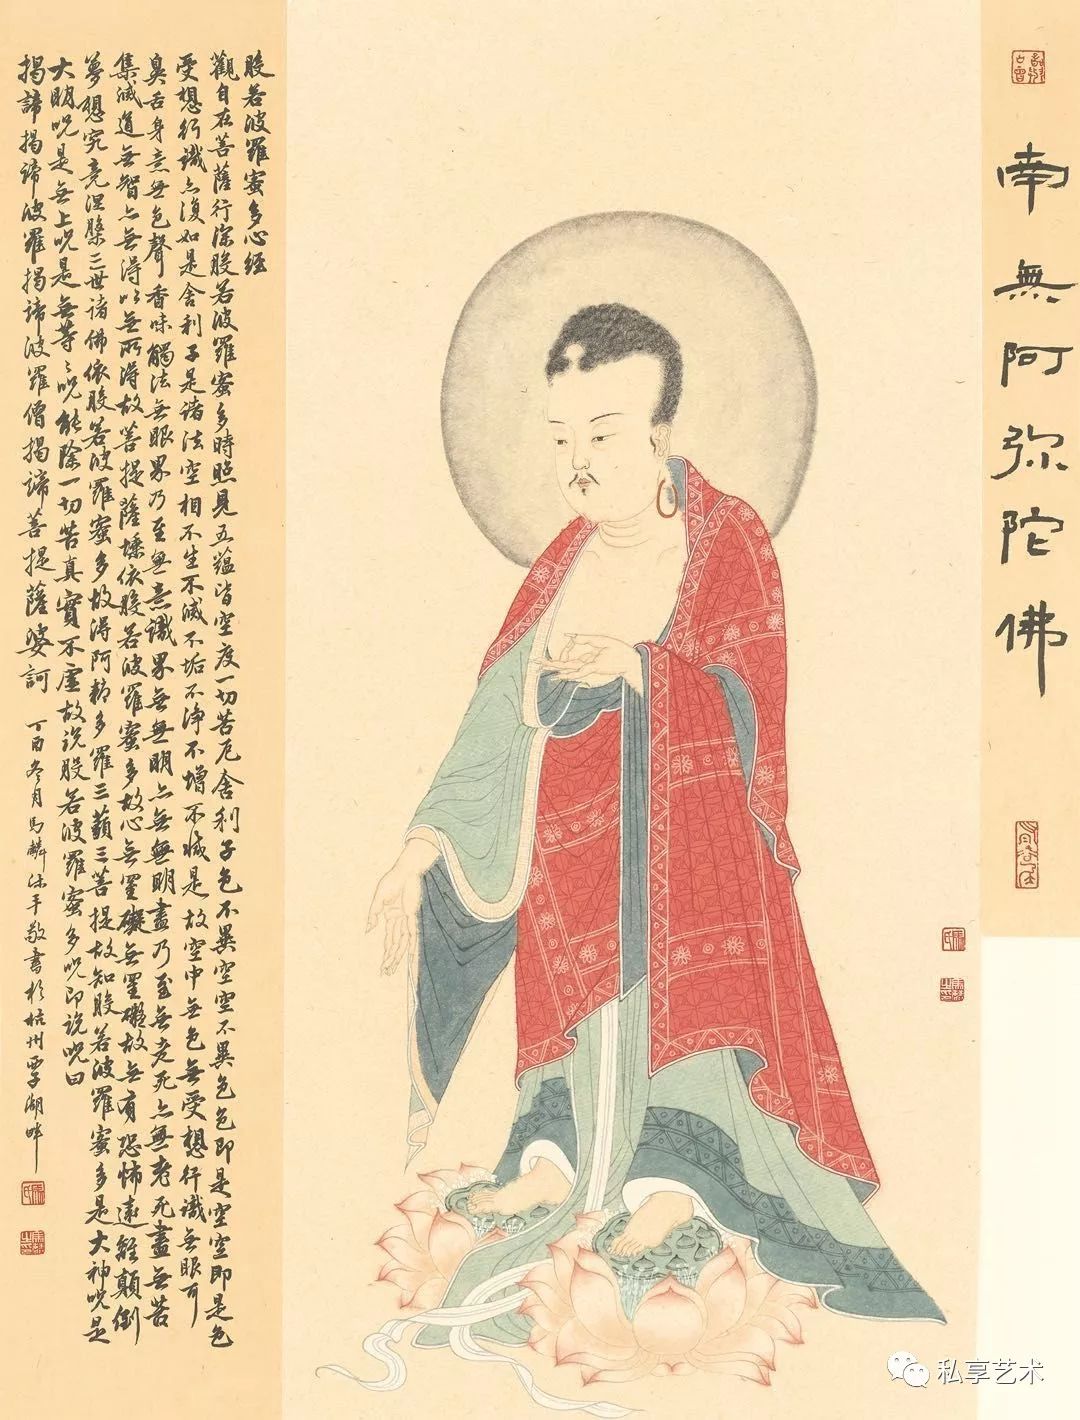 南無阿弥陀佛
般若波羅蜜多心經
觀自在菩薩行深般若波羅蜜多時照見五蘊皆空度一切苦厄舍利子色不異空空不異色色即是空空即是色
受想行識亦復如是舍利子是諸法空相不生不滅不垢不淨不增不減是故空中無色無受想行識無眼耳
鼻舌身意無色聲香味觸法無眼界乃至無意識界無無明亦無無明盡乃至無老死亦無老死盡無苦
集滅道無智亦無得以無所得故菩提薩埵依般若波羅蜜多故心無罣礙無罣礙故無有恐怖遠離顛倒
夢想究竟涅槃三世諸佛依般若波羅蜜多故得阿耨多羅三藐三菩提故知般若波羅蜜多是大神咒是
大明咒是無上咒是無等々咒能除一切苦真實不虛故說般若波羅蜜多咒即說咒曰
揭諦揭諦波羅揭諦波羅僧揭諦菩提薩婆訶 丁酉冬月馬麟沐手敬書於杭州西子湖畔
私享艺术